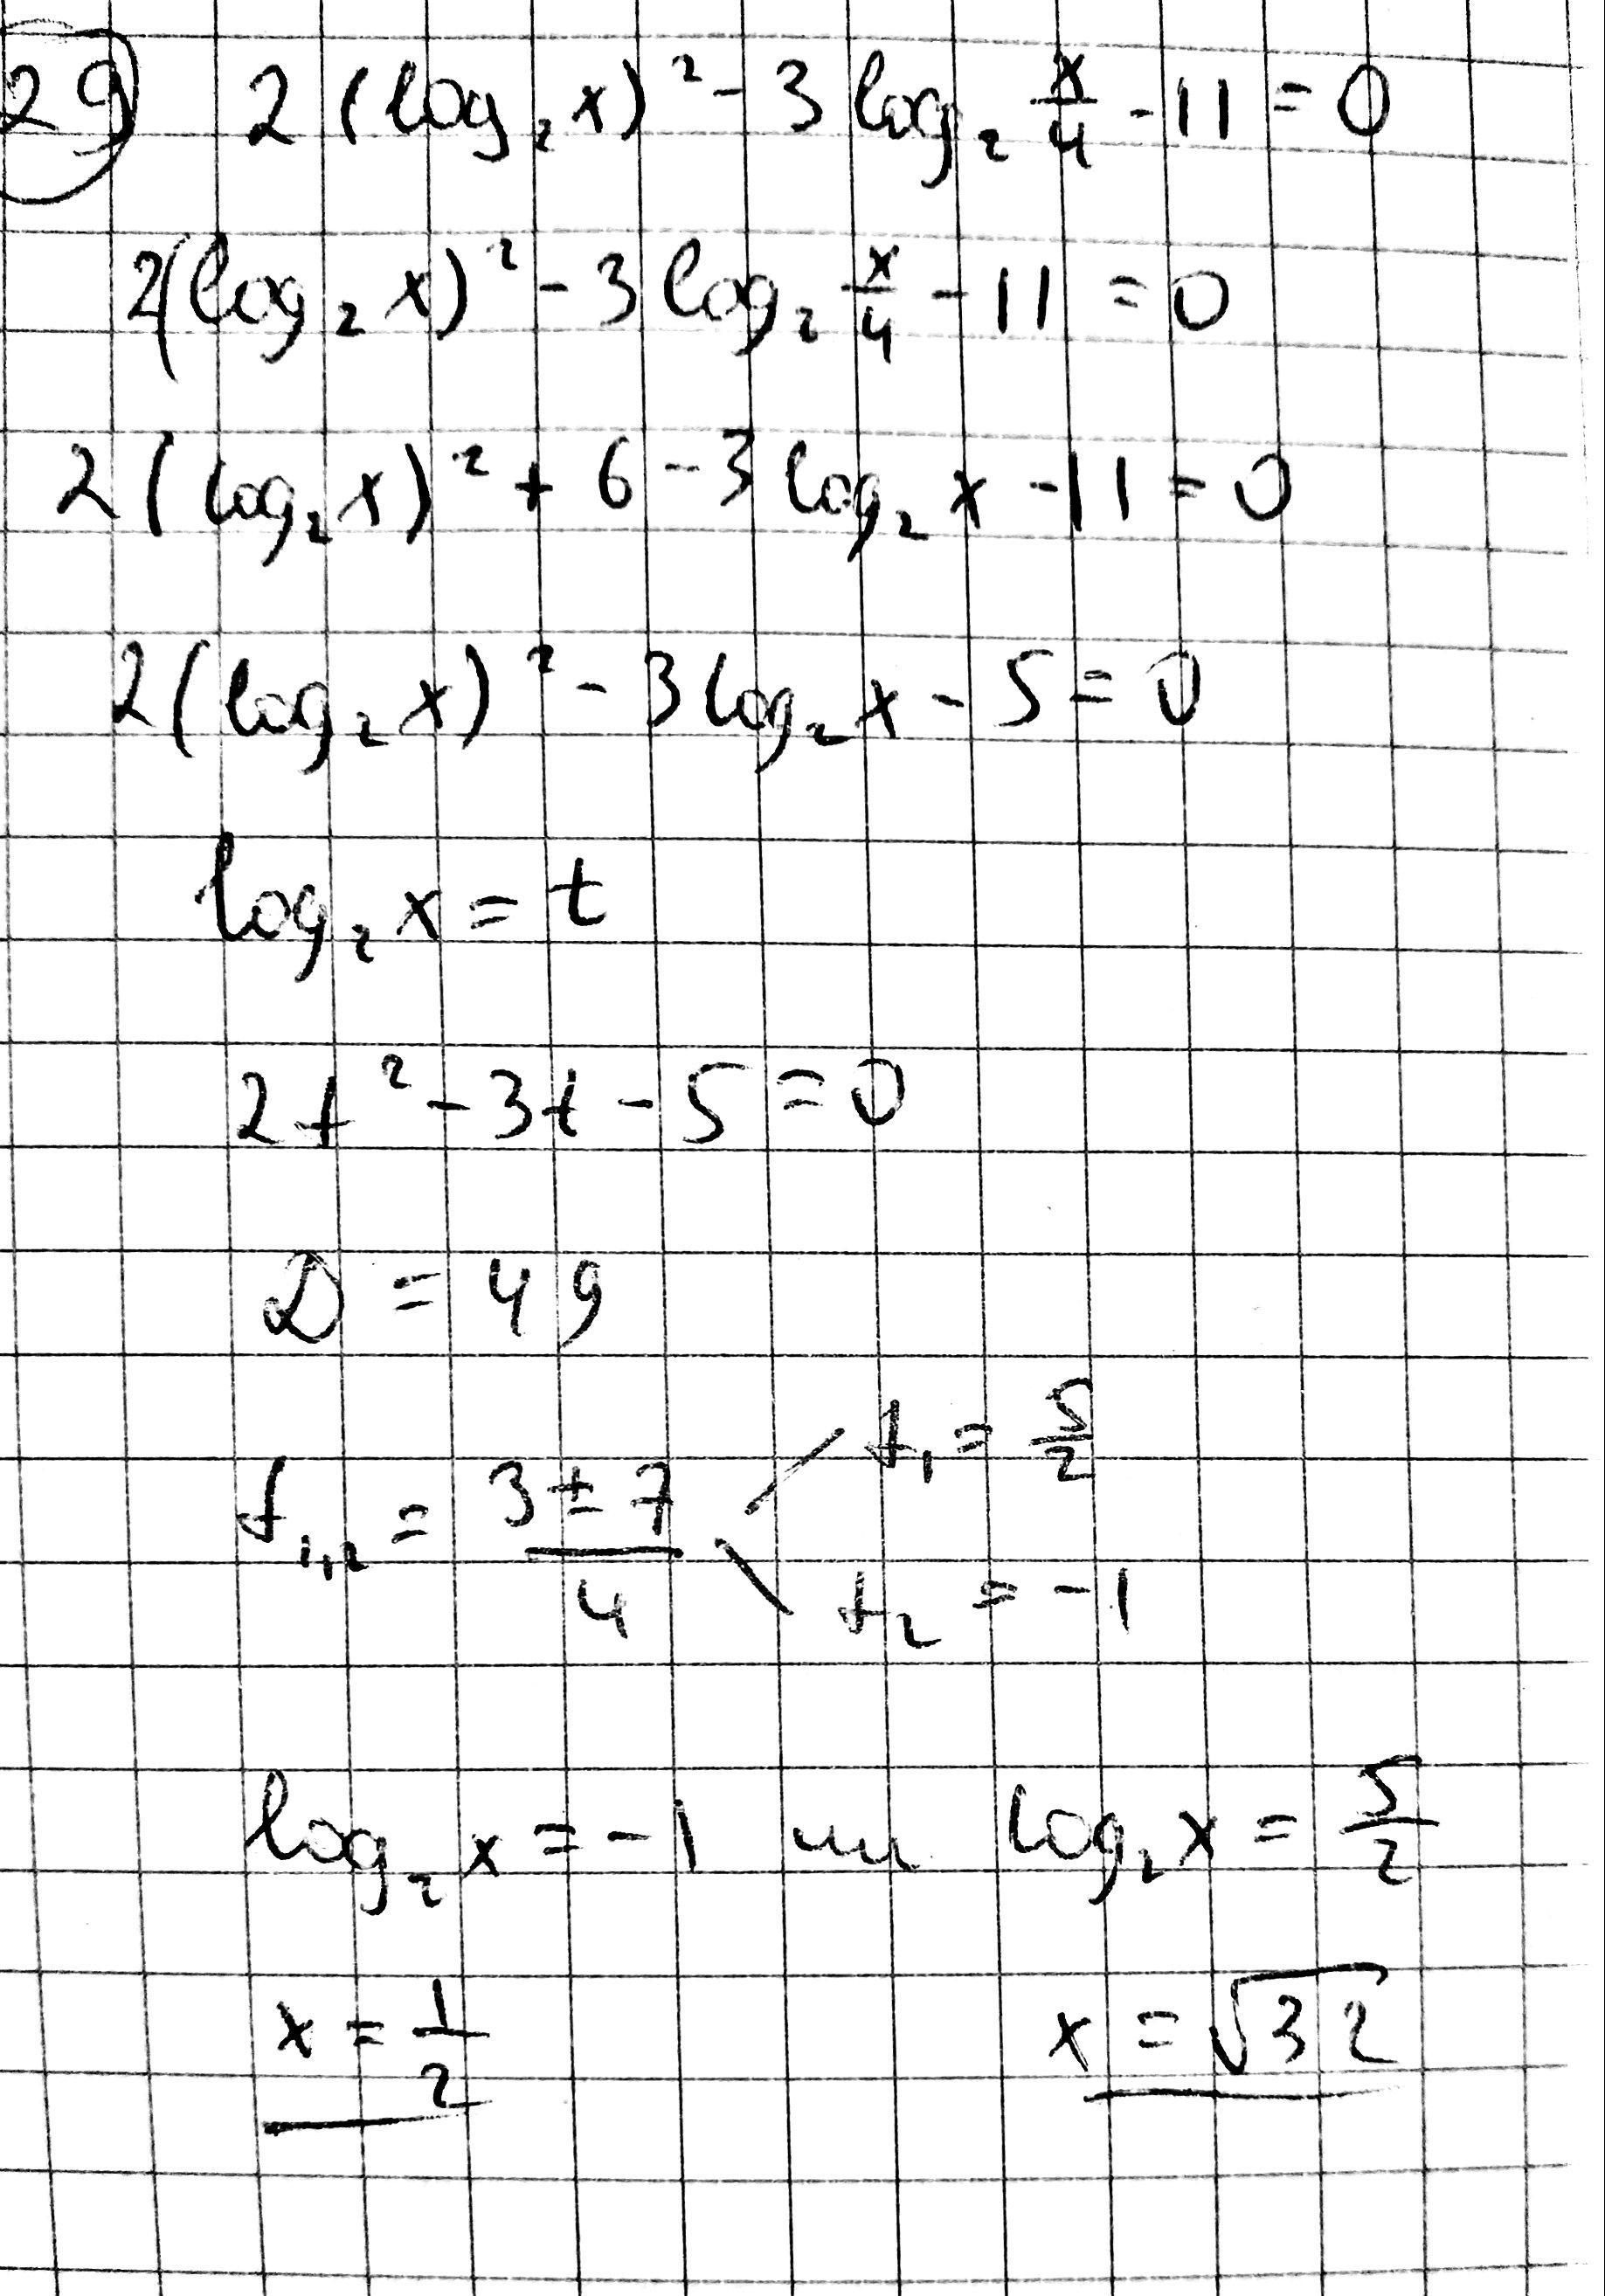 29) 2 (log₂ x)² - 3 log₂ x/4 - 11 = 0
2(log₂ x)² - 3 log₂ x/4 - 11 = 0
2 (log₂ x)² + 6 - 3 log₂ x - 11 = 0
2 (log₂ x)² - 3 log₂ x - 5 = 0
log₂ x = t
2t² - 3t - 5 = 0
D = 49
t₁,₂ = (3 ± 7)/4 t₁ = 5/2
t₂ = -1
log₂ x = -1 или log₂ x = 5/2
x = 1/2 x = √32